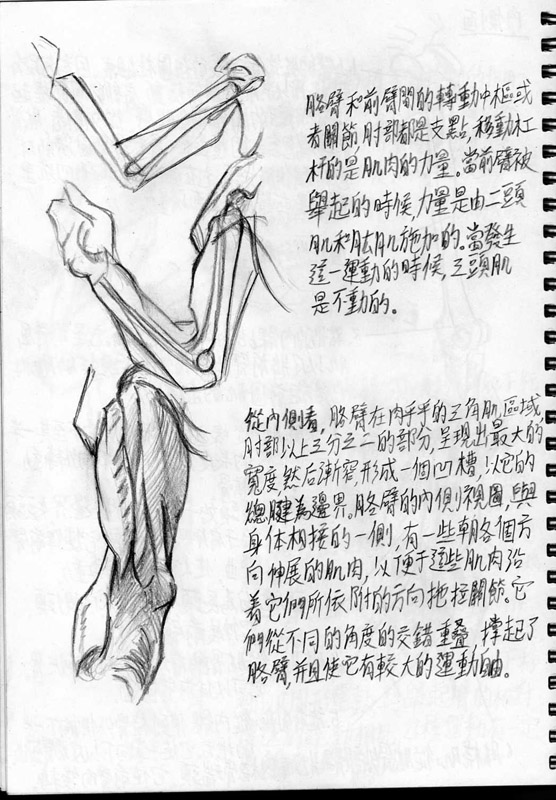 胳臂和前臂間的轉動中樞或
者關節,肘部都是支點,移動杠
杆的是肌肉的力量。當前臂被
舉起的時候,力量是由二頭
肌和肱肌施加的。當發生
這一運動的時候,三頭肌
是不動的。
從內側看,胳臂在肉乎乎的三角肌區域,
肘部以上三分之二的部分,呈現出最大的
寬度然后漸窄,形成一個凹槽,以它的
總腱為邊界。胳臂的內側視圖,與
身体相接的一側,有一些朝各個方
向伸展的肌肉,以便于這些肌肉沿
着它們所依附的方向拖拉關節。它
們從不同的角度的交錯重疊,撑起了
胳臂,并且使它有較大的運動自由。